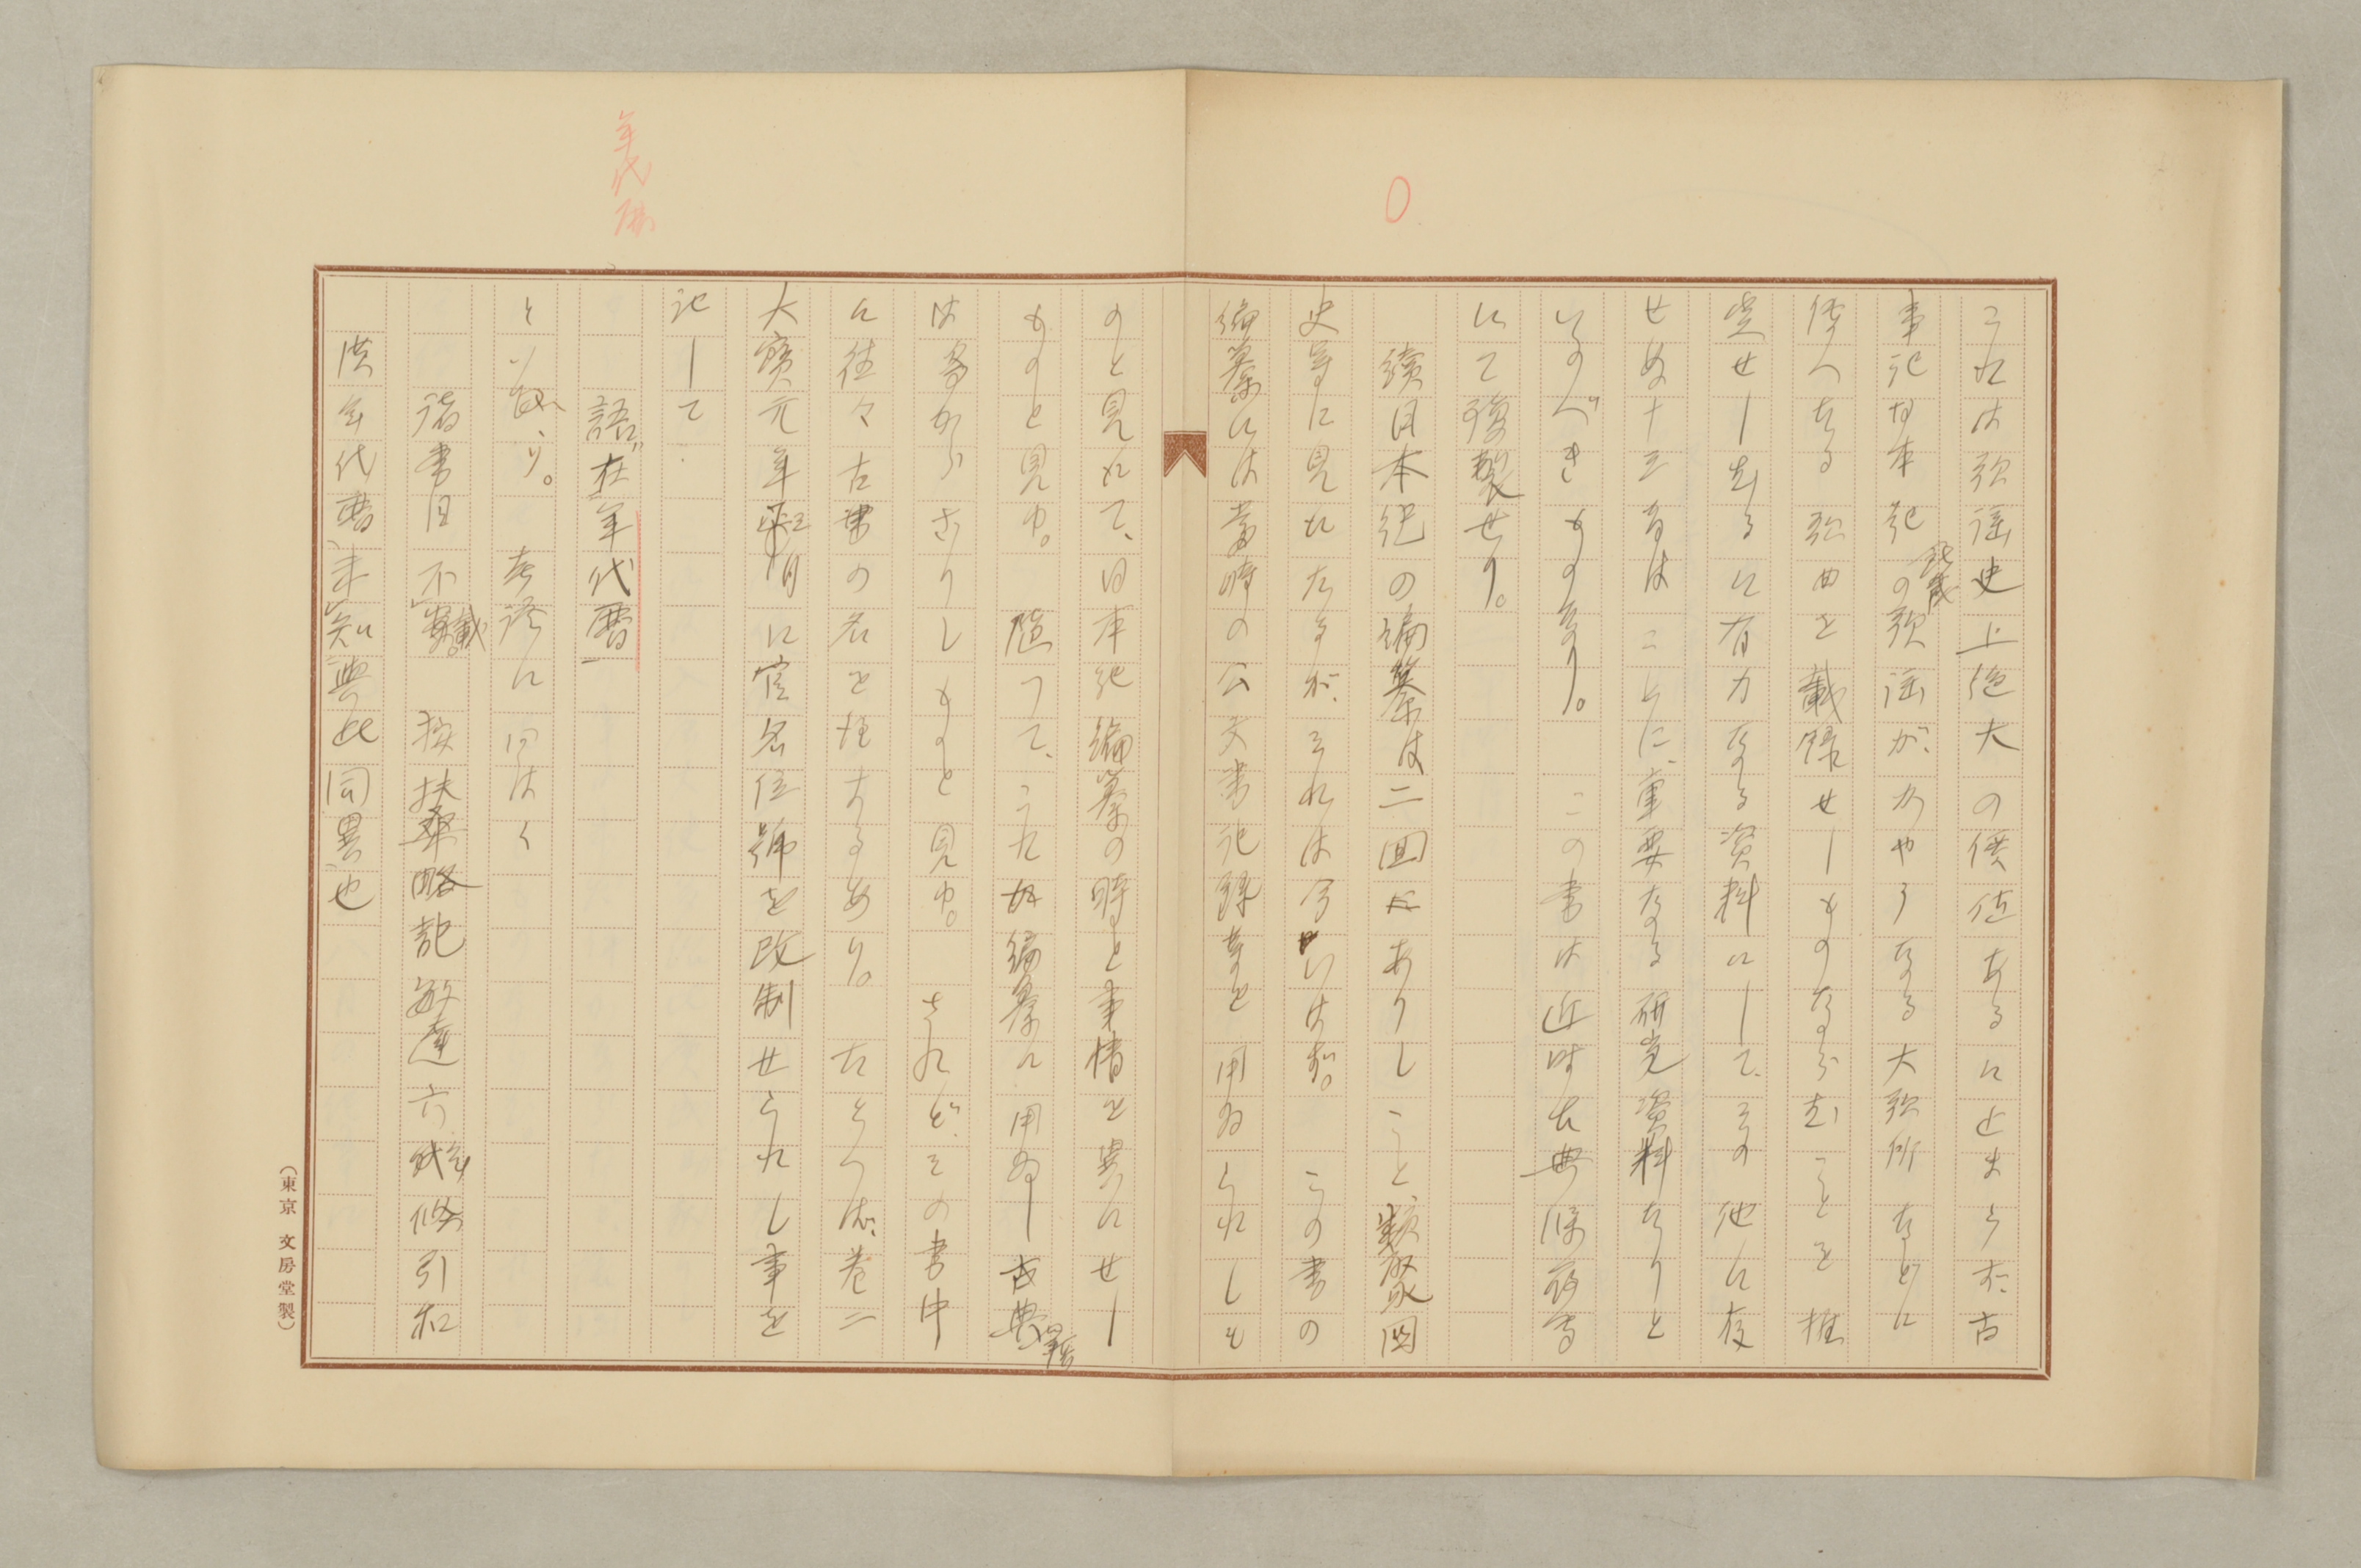 これは歌謡史上絶大の価値あるに止まらず、古
事記日本紀の歌謡が、かやうなる大歌所などに
所蔵
傳へたる歌曲を載録せしものならむことを推
定せしむるに有力なる資料にして、その他に存
せぬ十三首は ことに、重要なる研究資料なりと
いふべきものなり。 この書は近時古典保存會
にて複製せり。
續日本紀の編纂は二回にありしこと、類聚国
史等に見れたるが、それは今いはず。 この書の
編纂には當時の公文書記録等を用ゐられしも
のと見れて、日本紀編纂の時と事情を異にせし
ものと見ゆ。 随つて、これが編纂に用ゐし古典
籍
は多からざりしものと見ゆ。 されど、その書中
に往々古書の名を注するあり。 たとへば、巻二
大寶元年三月に官名位號を改制せられし事を
記して
語在年代暦
といへり。 考證に曰はく
諸書目不載。 按 扶桑略記 敏達六年條引和
漢年代暦、未知與此同異也
年代暦
○
（東京 文房堂製）